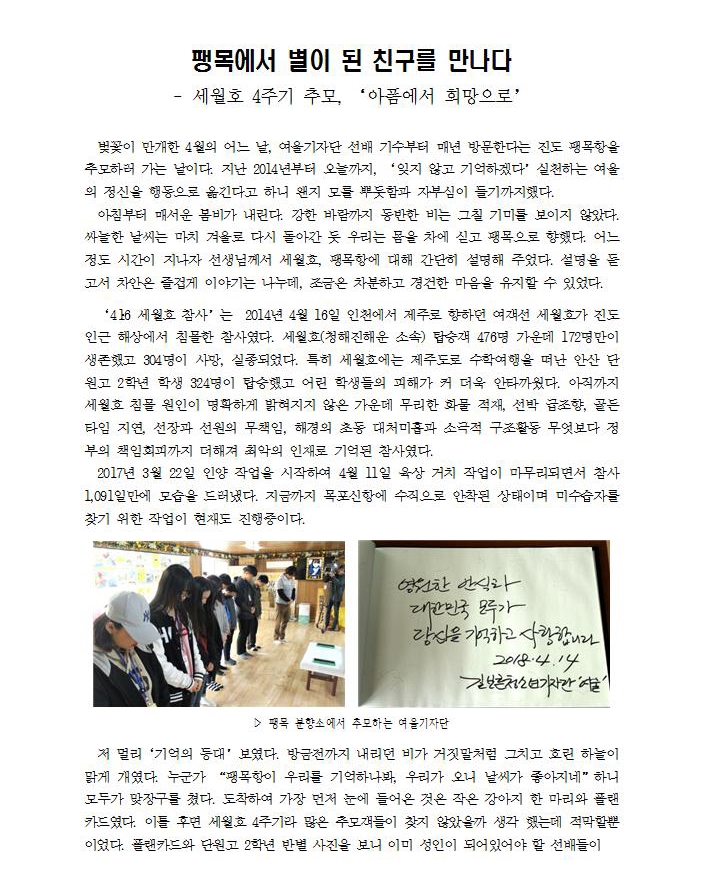 팽목에서 별이 된 친구를 만나다
- 세월호 4주기 추모, ‘아픔에서 희망으로’
벚꽃이 만개한 4월의 어느 날, 여울기자단 선배 기수부터 매년 방문한다는 진도 팽목항을
추모하러 가는 날이다. 지난 2014년부터 오늘까지, ‘잊지 않고 기억하겠다’ 실천하는 여울
의 정신을 행동으로 옮긴다고 하니 왠지 모를 뿌듯함과 자부심이 들기까지했다.
아침부터 매서운 봄비가 내린다. 강한 바람까지 동반한 비는 그칠 기미를 보이지 않았다.
싸늘한 날씨는 마치 겨울로 다시 돌아간 듯 우리는 몸을 차에 싣고 팽목으로 향했다. 어느
정도 시간이 지나자 선생님께서 세월호, 팽목항에 대해 간단히 설명해 주었다. 설명을 듣
고서 차안은 즐겁게 이야기는 나누데, 조금은 차분하고 경건한 마음을 유지할 수 있었다.
‘416 세월호 참사’는 2014년 4월 16일 인천에서 제주로 향하던 여객선 세월호가 진도
인근 해상에서 침몰한 참사였다. 세월호(청해진해운 소속) 탑승객 476명 가운데 172명만이
생존했고 304명이 사망, 실종되었다. 특히 세월호에는 제주도로 수학여행을 떠난 안산 단
원고 2학년 학생 324명이 탑승했고 어린 학생들의 피해가 커 더욱 안타까웠다. 아직까지
세월호 침몰 원인이 명확하게 밝혀지지 않은 가운데 무리한 화물 적재, 선박 급조향, 골든
타임 지연, 선장과 선원의 무책임, 해경의 초동 대처미흡과 소극적 구조활동 무엇보다 정
부의 책임회피까지 더해져 최악의 인재로 기억된 참사였다.
2017년 3월 22일 인양 작업을 시작하여 4월 11일 육상 거치 작업이 마무리되면서 참사
1,091일만에 모습을 드러냈다. 지금까지 목포신항에 수직으로 안착된 상태이며 미수습자를
찾기 위한 작업이 현재도 진행중이다.
영원한 안식과
대한민국 모두가
당신을 기억하고 사랑합니다
2018.4.14
길보른청소년기자단 '여울'
▷ 팽목 분향소에서 추모하는 여울기자단
저 멀리 ‘기억의 등대’ 보였다. 방금전까지 내리던 비가 거짓말처럼 그치고 흐린 하늘이
맑게 개였다. 누군가 “팽목항이 우리를 기억하나봐, 우리가 오니 날씨가 좋아지네” 하니
모두가 맞장구를 쳤다. 도착하여 가장 먼저 눈에 들어온 것은 작은 강아지 한 마리와 플랜
카드였다. 이틀 후면 세월호 4주기라 많은 추모객들이 찾지 않았을까 생각 했는데 적막할뿐
이었다. 플랜카드와 단원고 2학년 반별 사진을 보니 이미 성인이 되어있어야 할 선배들이